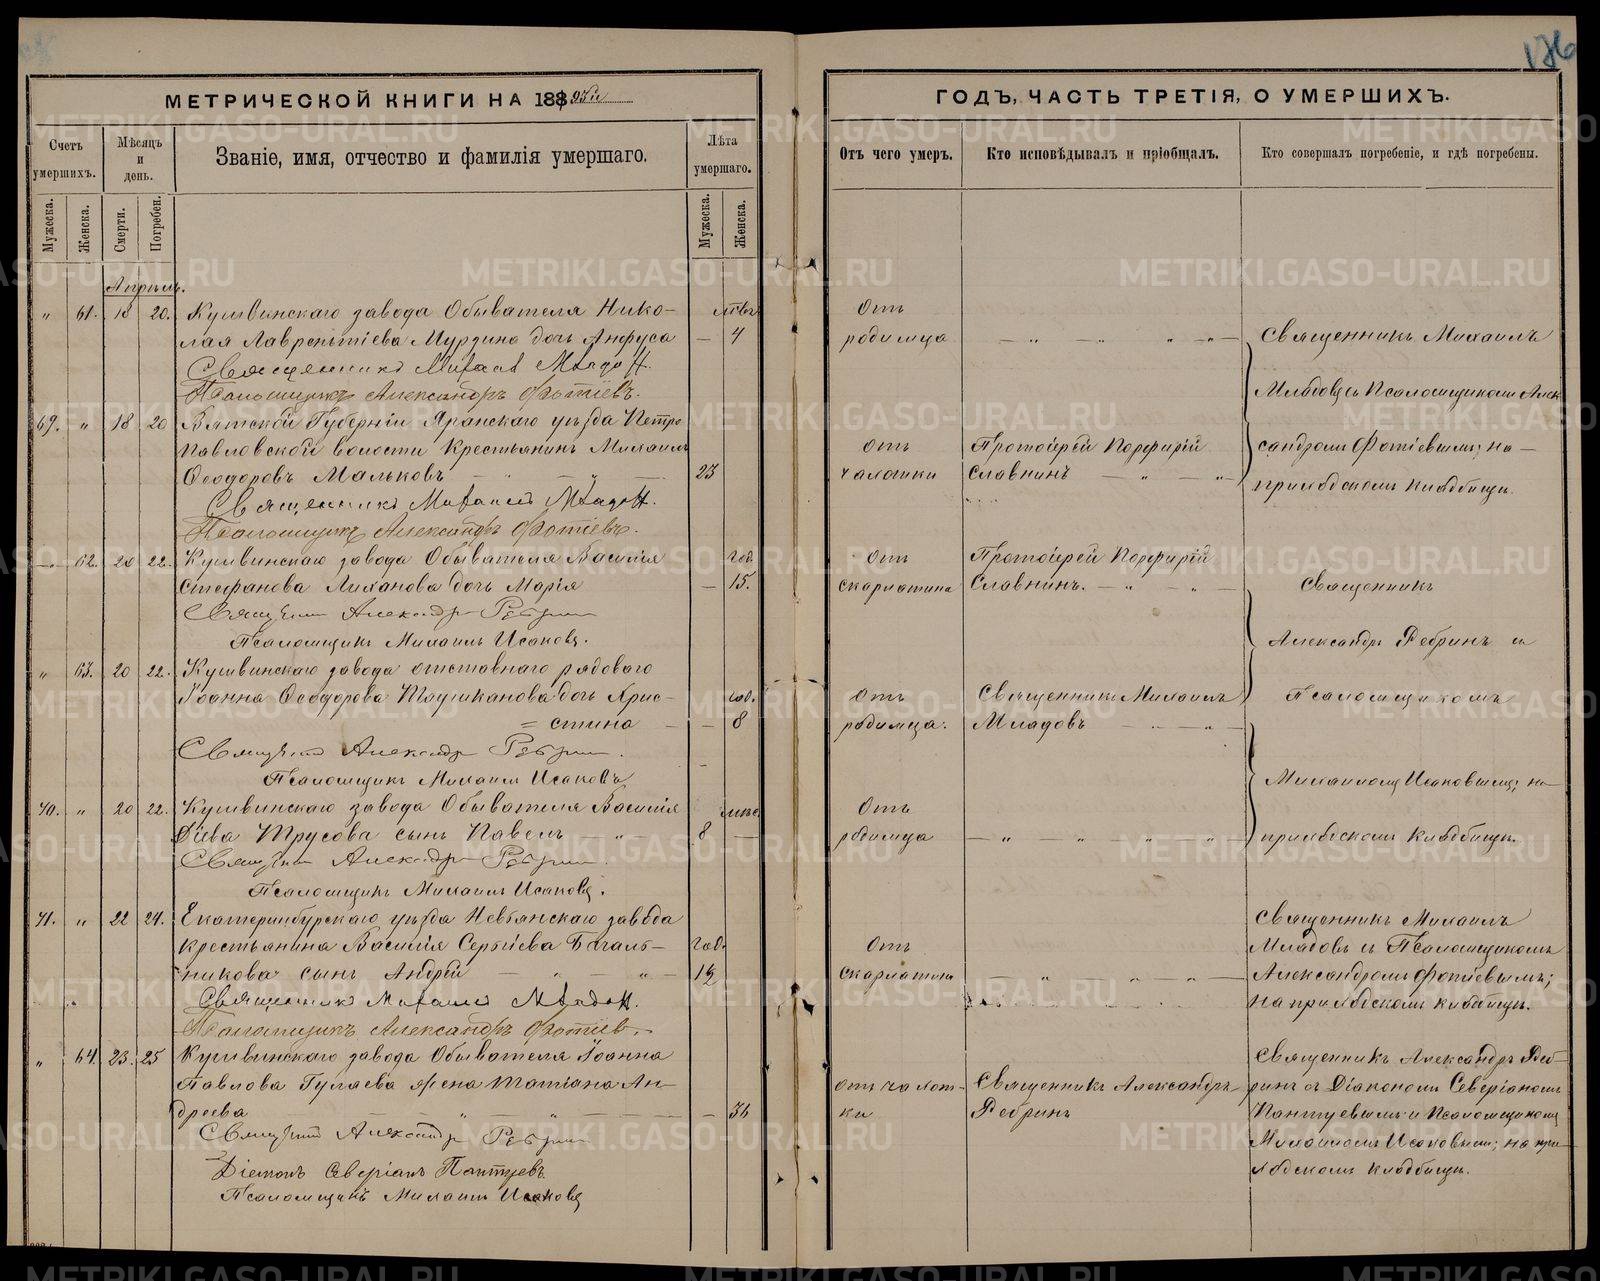 176
МЕТРИЧЕСКОЙ КНИГИ НА 1895й
ГОДЪ, ЧАСТЬ ТРЕТІЯ, О УМЕРШИХЪ.
Счетъ умершихъ.
Мѣсяцъ и день.
Званіе, имя, отчество и фамилія умершаго.
Лѣта умершаго.
Отъ чего умеръ.
Кто исповѣдывалъ и пріобщалъ.
Кто совершалъ погребеніе, и гдѣ погребены.
Мужеска.
Женска.
Смерти.
Погребен.
Мужеска.
Женска.
Апрѣль.
" 61. 18 20. Кушвинскаго завода Обывателя Нико-
лая Лаврентіева Мурзина дочь Анфуса — 4
Отъ
родимца
Священникъ Михаилъ Младовъ
Псаломщикъ Александръ Фотіевъ.
69. " 18 20 Вятской Губерніи Яранскаго уѣзда Петро
Павловской волости Крестьянинъ Михаилъ
Ѳеодоровъ Мальковъ 23
Отъ
чахотки
Протоіерей Порфирій
Славнинъ
Священникъ Михаилъ Младовъ.
Псаломщикъ Александръ Фотіевъ.
Священникъ Михаилъ
Младовъ съ Псаломщикомъ Алек
сандромъ Фотіевымъ; на
приходскомъ кладбищѣ.
62. 20 22. Кушвинскаго завода Обывателя Василія год.
Стефанова Лиханова дочь Марія — 15.
Отъ
скарлатина
Протоіерей Порфирій
Славнинъ.
Священникъ Александръ Ребринъ
Псаломщикъ Михаилъ Исаковъ.
" 63. 20 22. Кушвинскаго завода отставнаго рядового
Іоанна Ѳеодорова дочь Хрис- год.
= стина — 8
Отъ
родимца.
Священникъ Михаилъ
Младовъ
Священникъ Александръ Ребринъ.
Псаломщикъ Михаилъ Исаковъ
70. " 20 22. Кушвинскаго завода Обывателя Василія
Діева Трусова сынъ Павелъ 8 —
Отъ
родимца
Священникъ Александръ Ребринъ.
Псаломщикъ Михаилъ Исаковъ.
Священникъ
Александръ Ребринъ съ
Псаломщикомъ
Михаиломъ Исаковымъ; на
приходскомъ кладбищѣ.
71. " 22 24. Екатеринбурскаго уѣзда Невьянскаго завода
крестьянина Василія Сергіева год.
никова сынъ Андрей 12
Отъ
скарлатины
Священникъ Михаилъ
Младовъ съ Псаломщикомъ
Александромъ Фотіевымъ;
на приходскомъ кладбищѣ.
Священникъ Михаилъ Младовъ.
Псаломщикъ Александръ Фотіевъ.
" 64. 23. 25 Кушвинскаго завода Обывателя Іоанна
Павлова Гуляева жена Татіана Ан-
дреева — 36
отъ чахот-
ки
Священникъ Александръ
Ребринъ
Священникъ Александръ Реб-
ринъ съ Діакономъ Северіаномъ
Пантуевымъ и Псаломщикомъ
Михаиломъ Исаковымъ; на при-
ходскомъ кладбищѣ.
Священникъ Александръ Ребринъ
Діаконъ Северіанъ Пантуевъ
Псаломщикъ Михаилъ Исаковъ
METRIKI.GASO-URAL.RU